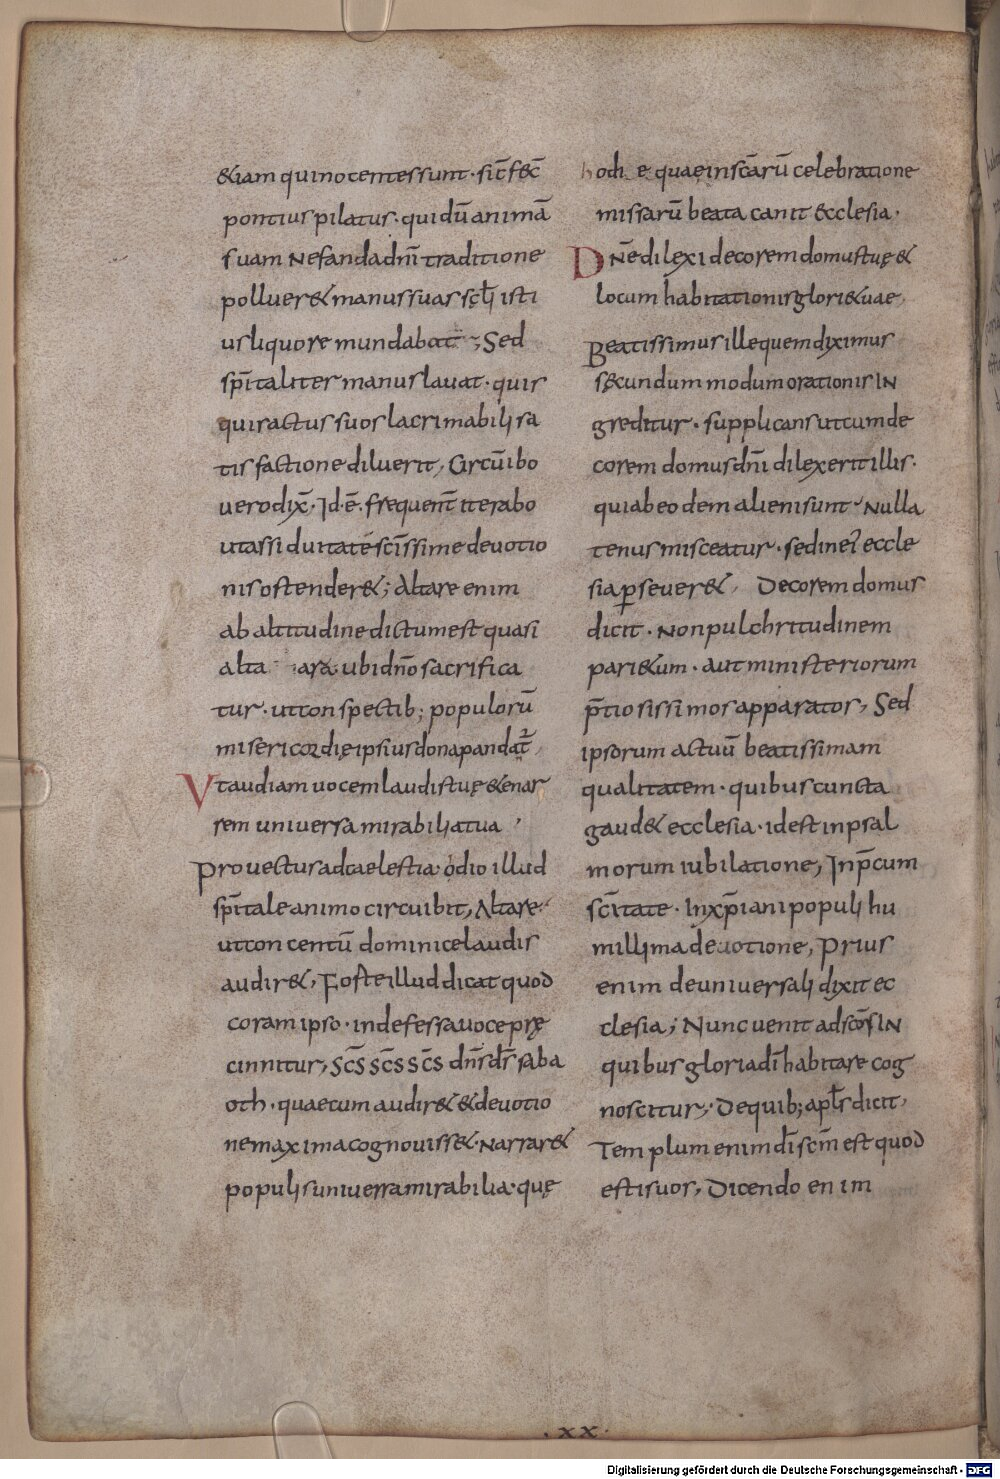 &iam qui nocentes sunt · sic̄ fec̄
pontius pilatus · qui dū animā
suam Nefanda dn̄i traditione
polluer& manus suas sc̨l̄i isti
us liquore mundabat ; Sed
sp̄italiter manus lavat · quis
quis actus suos lacrimabili sa
tisfactione diluerit, Circūibo
vero dix̄ · Id · ē · frequent̄ iterabo
ut assiduitatē sc̄issime devotio
nis ostender& ; Altare enim
ab altitudine dictum est quasi
alta ara · ubi dn̄o sacrifica
tur · ut conspectib; populorū
misericordię ipsius dona pandat᷑,
Vt audiam uocem laudis tuę & enar
rem universa mirabilia tua ,
Provectus ad caelestia · odio illud
sp̄itale animo circuibit, Altare
ut concentū dominice laudis
audir&, Foste illud dicat quod
coram ipso · indefessa uoce prę
cinnitur, Sc̄s sc̄s sc̄s dn̄s ds̄ saba
oth · quae cum audir& & devotio
ne maxima cognouiss& · Narrar&
populis universa mirabilia · quę
hodie quae in scārū celebratione
missarū beata canit ecclesia ·
Dn̄e dilexi decorem domus tuę &
locum habitationis gloriae tuae
Beatissimus ille quem diximus
sęcundum modum orationis IN
greditur · supplicans ut cum de
corem domus dn̄i dilexerit illis ·
qui ab eodem alieni sunt Nulla
tenus misceatur · sed in ei᷑ eccle
sia p̱sever& , Decorem domus
dicit · Non pulchritudinem
pari&um · aut ministeriorum
p̄tiosissimos apparatos, Sed
ipsorum actuū beatissimam
qualitatem · quibus cuncta
gaud& ecclesia · id est in psal
morum iubilatione, In p̄cum
sc̄itate · In xp̄iani populi hu
millima devotione, Prius
enim de universali dixit ec
clesia; Nunc venit ad scōs IN
quibus gloria dī habitare cog
noscitur, De quib; apl̄s dicit,
Templum enim dī scm̄ est quod
estis uos, Dicendo enim
· xx ·
Digitalisierung gefördert durch die Deutsche Forschungsgemeinschaft - DFG